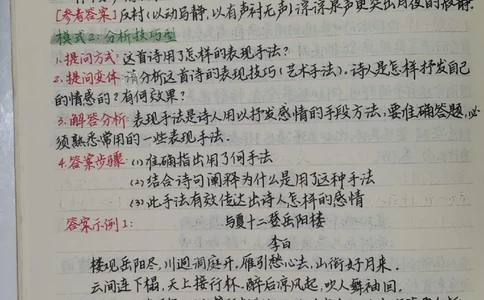 [参考答案]反衬(以动写静,以有声衬无声)淙淙泉声更突出月夜的寂静.
模式2:分析技巧型
1.提问方式:这首诗用了怎样的表现手法?
2.提问变体:请分析这首诗的表现技巧(艺术手法).诗人是怎样抒发自己
的情感的?有何效果?
3.解答分析:表现手法是诗人用以抒发感情的手段方法,要准确答题,必
须熟悉常用的一些表现手法.
4.答案步骤:(1)准确指出用了何手法
(2)结合诗句阐释为什么是用了这种手法
(3)此手法有效传达出诗人怎样的感情
答案示例1: 与夏十二登岳阳楼
李白
楼观岳阳尽,川迥洞庭开.雁引愁心去,山衔好月来.
云间连下榻,天上接行杯.醉后凉风起,吹人舞袖回.